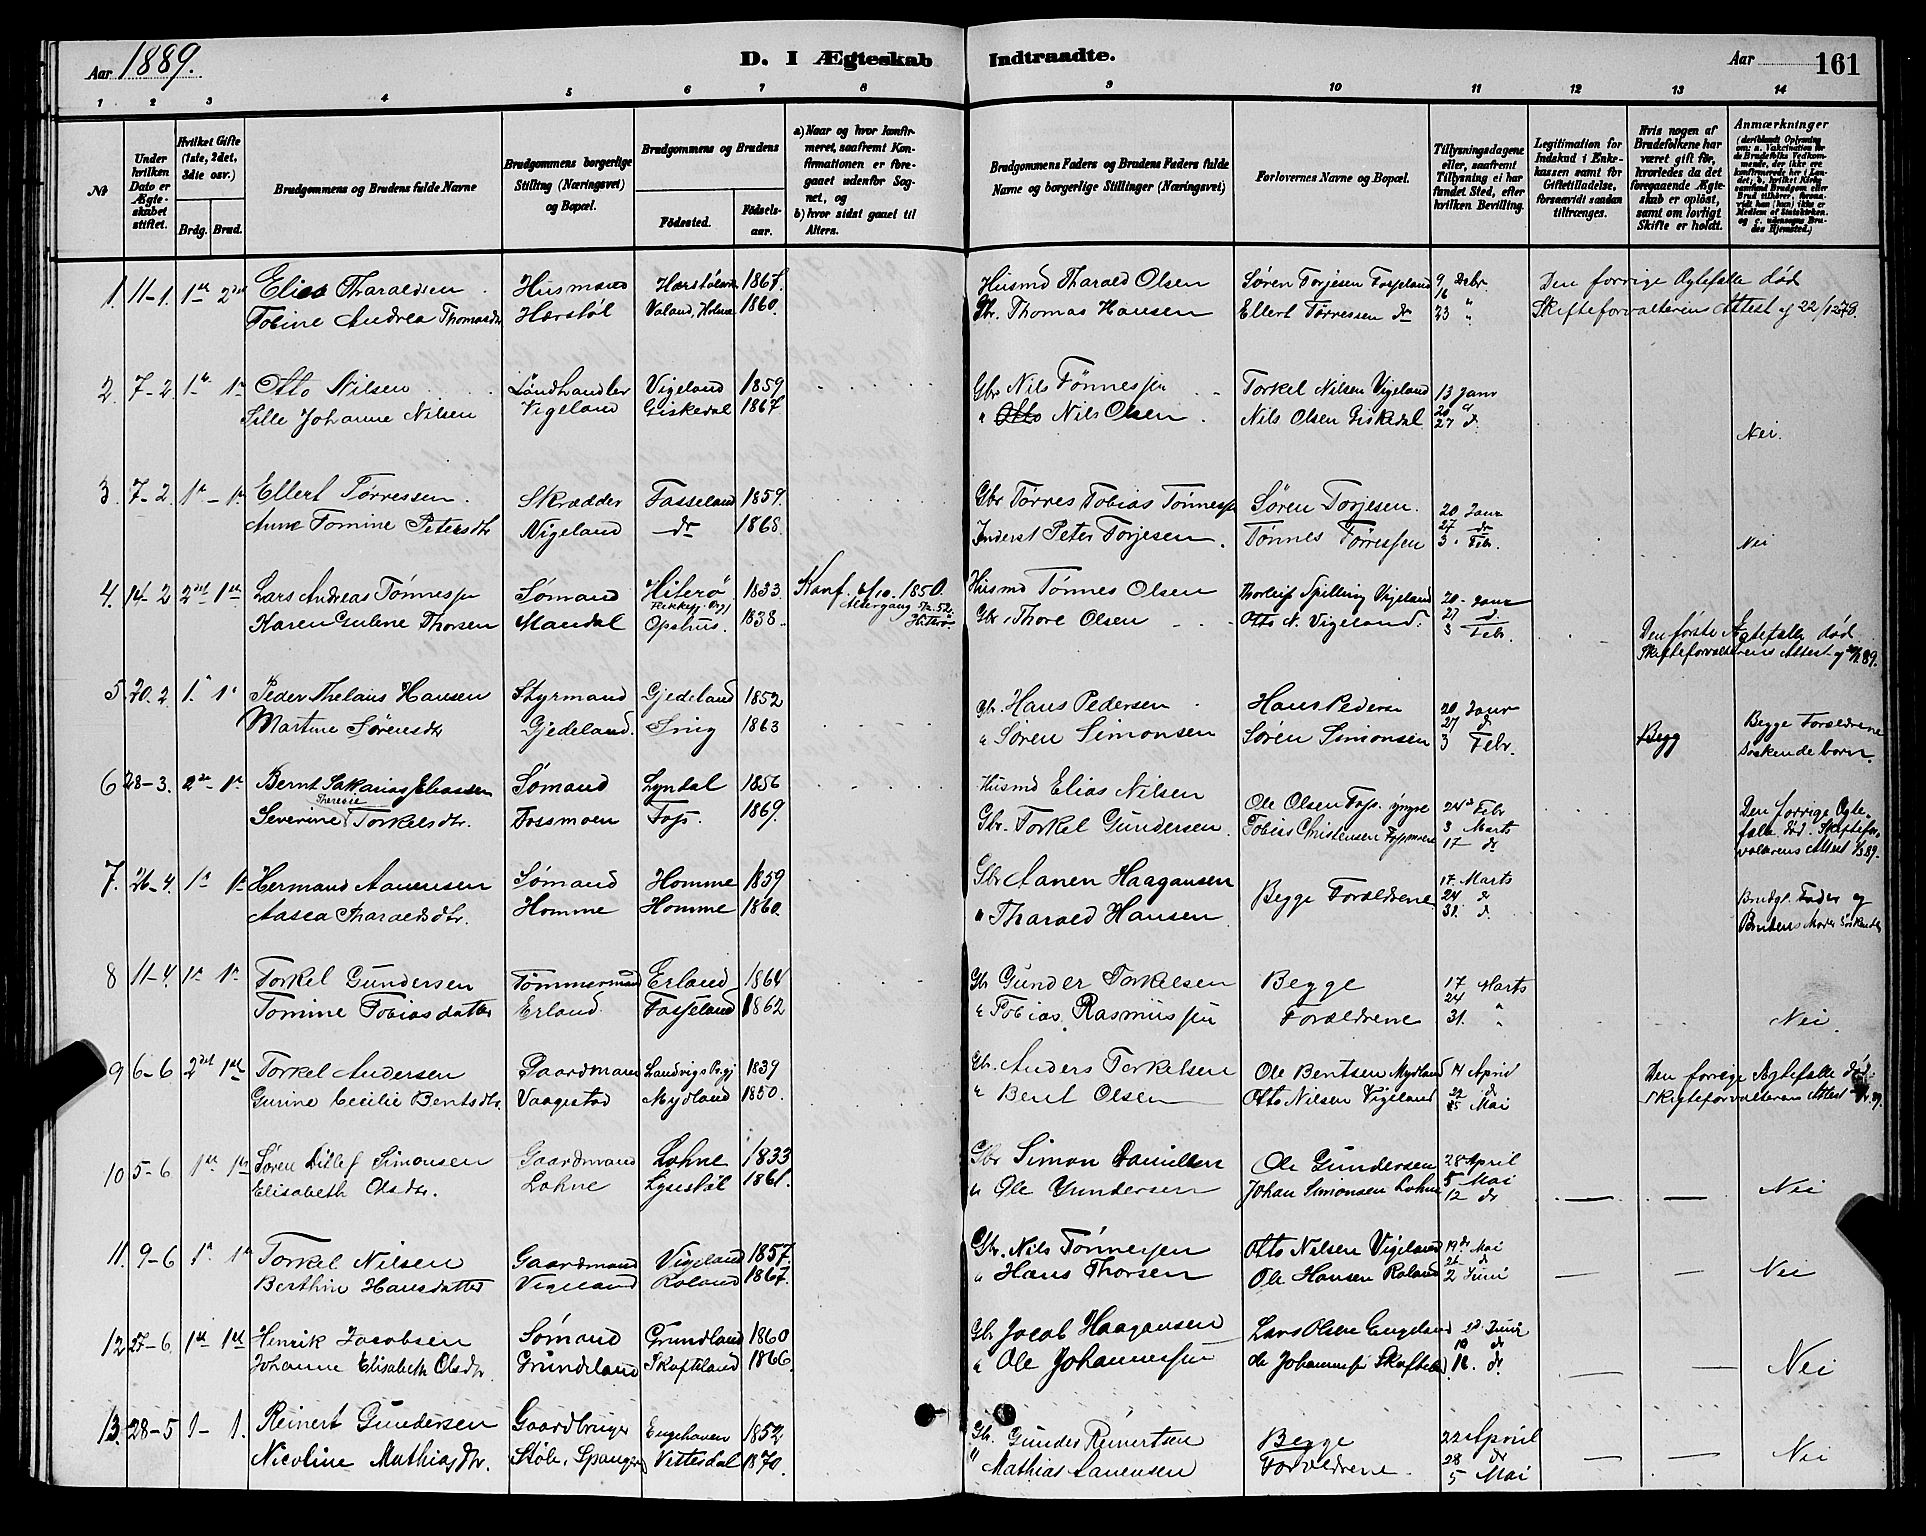 Aar 1889.
D. I Ægteskab Indtraadte.
Aar 161
1 2 3 4 5 6 7 8 9 10 11 12 13 14
No
Under hvilken Dato er Ægteskabet stiftet.
Hvilket Gifte (1ste, 2det, 3die osv.)
Brdg. Brud.
Brudgommens og Brudens fulde Navne
Brudgommens borgerlige Stilling (Næringsvei) og Bopæl.
Brudgommens og Brudens
Fødested.
Fødselsaar.
a) Naar og hvor konfirmeret, saafremt Konfirmationen er foregaaet udenfor Sognet, og
b) hvor sidst gaaet til Alters.
Brudgommens Faders og Brudens Faders fulde Navne og borgerlige Stillinger (Næringsvei)
Forlovernes Navne og Bopæl.
Tillysningsdagene eller, saafremt Tillysning ei har fundet Sted, efter hvilken Bevilling.
Legitimation for Indskud i Enkekassen samt for Giftetilladelse, forsaavidt saadan tiltrænges.
Hvis nogen af Brudefolkene har været gift før, hvorledes da det foregaaende Ægteskab er opløst, samt om lovligt Skifte er holdt.
Anmærkninger
1. 11-1. 1ste 2det Elias Tharaldsen Husmand 1867. Husmd Tharald Olsen Søren Torjesen Fosseland 9 Debr. Den forrige Ægtefælle død
Tobine Andrea Thomasdtr Hærstøl Valand, Holme 1860. Gbr. Thomas Hansen Ellert Tørressen do 16 23 " Skifteforvalterens Attest af
2. 7-2. 1ste 1ste Otto Nilsen Landhandler Vigeland 1859 Gbr Nils Tønnessen Torkel Nilsen Vigeland 13 Janr
Sille Johanne Nilsen Vigeland Giskedal 1867 " Otto Nils Olsen Nils Olsen Giskedal 20 " 27 d. Nei.
3. 7-2. 1ste - 1ste Ellert Tørressen Skrædder Fasseland 1859. Gbr Tørres Tobias Tønnessen Søren Torjesen. 20 Janr
Anne Tomine Petersdtr Vigeland do 1868. Inderst Peter Torjesen. Tønnes Tørressen 27 do 3. Febr. Nei
4. 14-2 2det 1ste Lars Andreas Tønnessen Sømand Hiterø 1833. Konf. 6/10. 1850. Husmd Tønnes Olsen Thorleif Spilling Vigeland 20 Janr
Karen Guline Thorsen Mandal Opshus. 1838. Altergang Hitterø Gbr. Thore Olsen Otto N. Vigeland. 27 d. 3 Febr. Den første Ægtefælle død Skifteforvalterens Attest
5 20. 2. 1. 1 Peder Thelans Hansen Styrmand Gjedeland 1852 Gbr. Hans Pedersen Hans Pedersen 20 Janr
Martine Sørensdtr Gjedeland. Snig 1863 " Søren Simonsen Søren Simonsen 27 d 3 Febr. Begg Begge Forældrene Søskendebørn.
6 28-3. 2det 1ste Bernt Sakarias Eliassen Sømand Lyndal 1856 Husmd Elias Nilsen Ole Olsen Foss. yngre 24de Febr
Severine Therese Torkelsdtr. Fossmoen Foss. 1869. Gbr. Torkel Gundersen. Tobias Christensen Fossmoen 3 Marts 17 do Den forrige Ægtefælle død. Skifteforvalterens Attest
7. 26-4. 1ste 1ste Hermand Aanensen Sømand Homme 1859 Gbr Aanen Haagansen Begge Forældrene 17. Marts
Aasea Tharaldsdtr. Homme Homme 1860. " Tharald Hansen 24 d 31. d. Brudg. Fader og Brudens Moder Søskende
8 11-4. 1ste 1ste Torkel Gundersen Tømmermand Erland 1864 Gbr Gunder Torkelsen Begge 17 Marts
Tomine Tobiasdatter Erland. Fasseland 1862 " Tobias Rasmussen Forældrene 24 31. " Nei.
9 6-6 2det 1ste Torkel Andersen Gaardmand Landvigs Prgj 1839 Gbr. Anders Torkelsen Ole Bentsen Mydland 14 April Den forrige Ægtefælle død.
Gurine Cecilie Bentsdtr. Vaagestad Mydland 1850. " Bent Olsen Otto Nilsen Vigeland 22 d. Mai Skifteforvalterens Attest
10 5-6 1ste 1ste Søren Ditlef Simonsen Gaardmand Lohne 1833 Gbr Simon Danielsen Ole Gundersen 28 April
Elisabeth Olsdtr. Lohne Lysestøl 1861. " Ole Gundersen Johan Simonsen Lohne 5 Mai 12 do Nei
11. 9-6 1ste 1ste Torkel Nilsen Gaardmand Vigeland 1857. Gbr. Nils Tønnessen Otto Nilsen Vigeland 19de Mai
Berthine Hansdatter Vigeland Roland 1867. " Hans Thorsen Ole Hansen Roland 26 d 2 Juni Nei
12 27-6. 1ste 1ste Henrik Jacobsen Sømand Grundland 1860 Gbr Jacob Haagansen Lars Olsen Engeland Juni
Johanne Elisabeth Olsdtr. Grundeland Skofteland 1866. " Ole Johannessen Ole Johannessen 16. d. Nei
13. 28-5 1- 1. Reinert Gundersen Gaardbruger Engehaven 1852 Gbr. Gunder Reinertsen Begge 22 April
Nicoline Mathiasdtr. Støle, Spangereid Vittesdal 1870. " Mathias Aanensen Forældrene. 28 do 5 Mai Nei